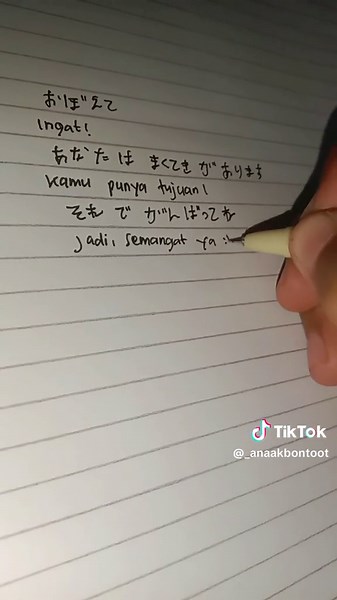 おぼえて
Ingat!
あなたは まくてき があります
kamu punya tujuan!
それ で がんばってね
Jadi, semangat ya :
TikTok
@_anaakbontoot